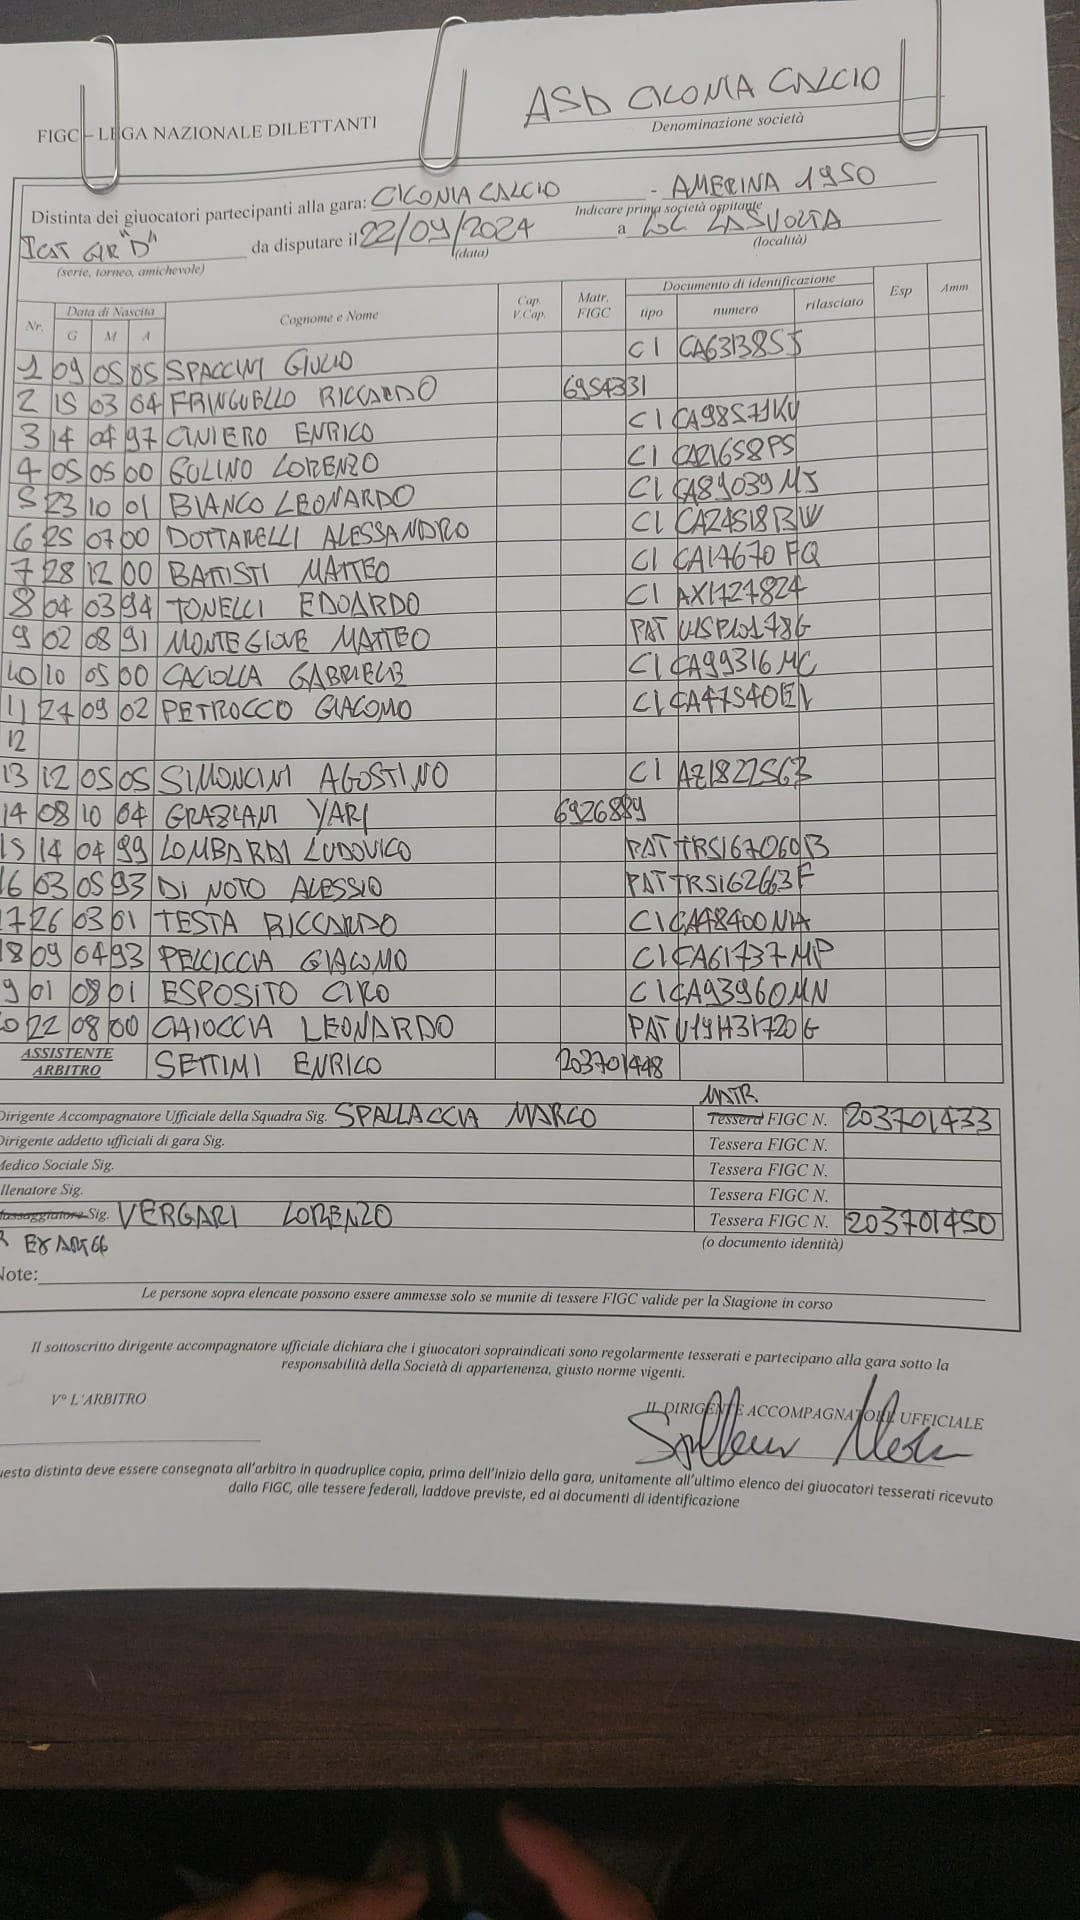 ASD CICONIA CALCIO
FIGC – LEGA NAZIONALE DILETTANTI
Denominazione società
Distinta dei giuocatori partecipanti alla gara: CICONIA CALCIO - AMERINA 1950
Indicare prima società ospitante
1CAT GIR "D" da disputare il 22/09/2024 a LOC LASVOLTA
(serie, torneo, amichevole) (data) (località)
Nr. Data di Nascita Cognome e Nome Cap. V.Cap. Matr. FIGC Documento di identificazione Esp Amm
G M A tipo numero rilasciato
1 09 05 05 SPACCINI GIULIO CI CA63138SJ
2 15 03 04 FRINGUELLO RICCARDO 6954331
3 14 04 97 CINIERO ENRICO CI CA98571KV
4 05 05 00 GULINO LORENZO CI CA21658PS
5 23 10 01 BIANCO LEONARDO CI CA89039MJ
6 25 07 00 DOTTARELLI ALESSANDRO CI CA24518BW
7 28 12 00 BATTISTI MATTEO CI CA17670FQ
8 04 03 94 TONELLI EDOARDO CI AX1727824
9 02 08 91 MONTEGIOVE MATTEO PAT
10 10 05 00 CACIOLLA GABRIELE CI CA99316MC
11 24 09 02 PETROCCO GIACOMO CI CA47540EI
12
13 12 05 05 SIMONCINI AGOSTINO CI AZ1822563
14 08 10 04 GRAZIANI YARI 6926889
15 14 04 99 LOMBARDI LUDOVICO PAT TR5167060B
16 03 05 93 DI NOTO ALESSIO PAT TR5162663F
17 26 03 01 TESTA RICCARDO CI CA48400NA
18 09 04 93 PELCICCIA GIACOMO CI CA61737MP
9 01 08 01 ESPOSITO CIRO CI CA93960MN
0 22 08 00 CAIOCCIA LEONARDO PAT U19H31720G
ASSISTENTE ARBITRO SETTIMI ENRICO 203701448
MATR.
Dirigente Accompagnatore Ufficiale della Squadra Sig. SPALLACCIA MARCO Tessera FIGC N. 203701433
Dirigente addetto ufficiali di gara Sig. Tessera FIGC N.
Medico Sociale Sig. Tessera FIGC N.
llenatore Sig. Tessera FIGC N.
Massaggiatore Sig. VERGARI LORENZO Tessera FIGC N. 203701450
EX ART 66 (o documento identità)
Note:
Le persone sopra elencate possono essere ammesse solo se munite di tessere FIGC valide per la Stagione in corso
Il sottoscritto dirigente accompagnatore ufficiale dichiara che i giuocatori sopraindicati sono regolarmente tesserati e partecipano alla gara sotto la
responsabilità della Società di appartenenza, giusto norme vigenti.
V° L'ARBITRO
IL DIRIGENTE ACCOMPAGNATORE UFFICIALE
uesta distinta deve essere consegnata all'arbitro in quadruplice copia, prima dell'inizio della gara, unitamente all'ultimo elenco dei giuocatori tesserati ricevuto
dalla FIGC, alle tessere federali, laddove previste, ed ai documenti di identificazione